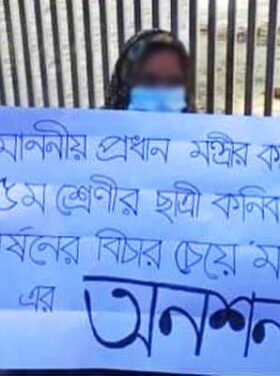 মাননীয় প্রধান মন্ত্রীর ক
৫ম শ্রেণীর ছাত্রী কনিব
র্ষনের বিচার চেয়ে ম
এর অনশন